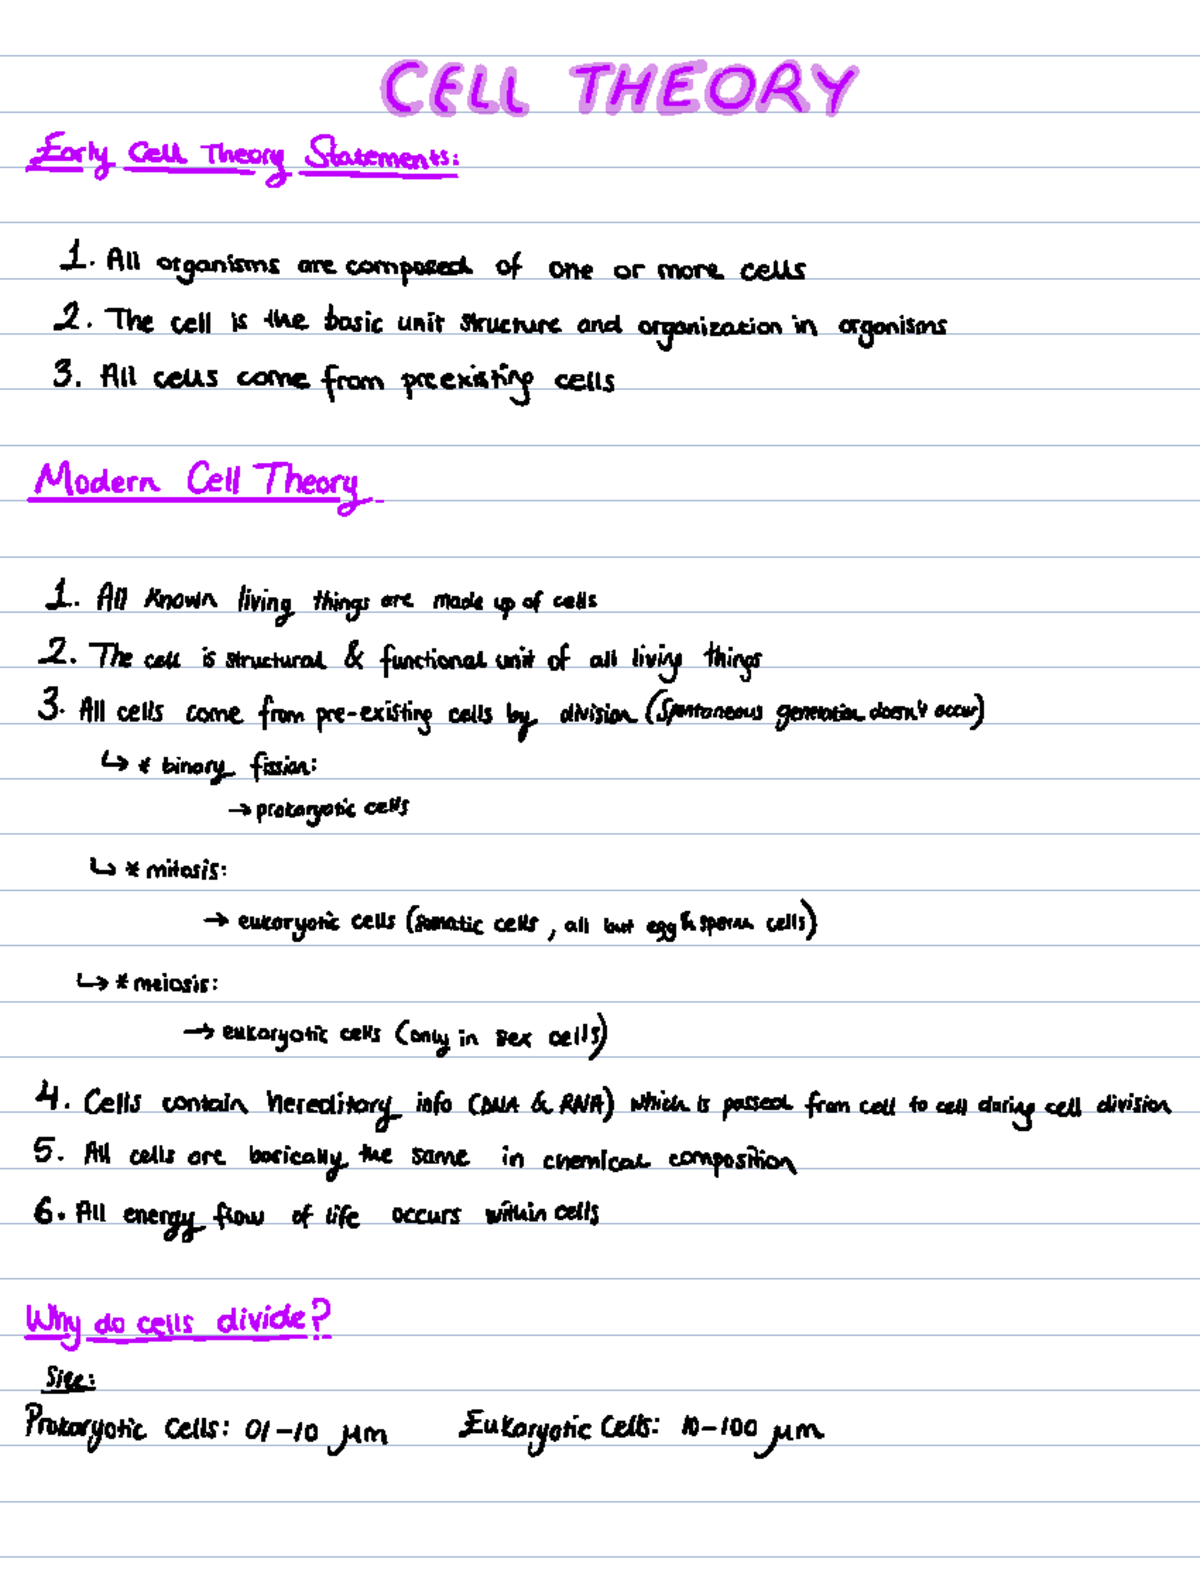 CELL THEORY
Early Cell Theory Statements:
1. All organisms are composed of one or more cells
2. The cell is the basic unit structure and organization in organisms
3. All cells come from preexisting cells
Modern Cell Theory
1. All known living things are made up of cells
2. The cell is structural & functional unit of all living things
3. All cells come from pre-existing cells by division (Spontaneous generation doesn't occur)
↳ * binary fission:
→ prokaryotic cells
↳ * mitosis:
→ eukaryotic cells (somatic cells, all but egg & sperm cells)
↳ * meiosis:
→ eukaryotic cells (only in sex cells)
4. Cells contain hereditary info (DNA & RNA) which is passed from cell to cell during cell division
5. All cells are basically the same in chemical composition
6. All energy flow of life occurs within cells
Why do cells divide?
Size:
Prokaryotic Cells: 01-10 μm Eukaryotic Cells: 10-100 μm